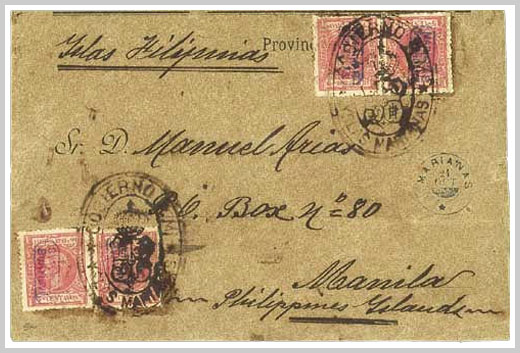 Islas Filipinas
Provinc
Sr. D. Manuel Arias
P.O. Box nº 80
Manila
Philippines Islands
GOBIERNO P.M.
S. MARIANAS
MARIANAS
GOBIERNO P.M.
S. MARIANAS